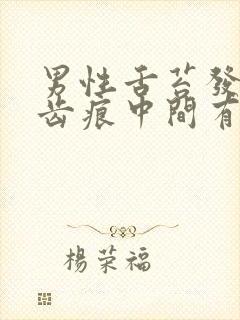 男性舌苔發
齒痕中間有
楊荣福